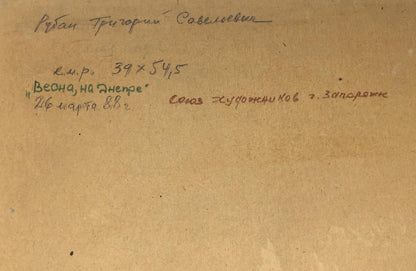 Рубан Григорий Савельевич
к.м.р. 39 х 54,5
"Весна, на Днепре"
26 марта 88 г
Союз художников г. Запорожье